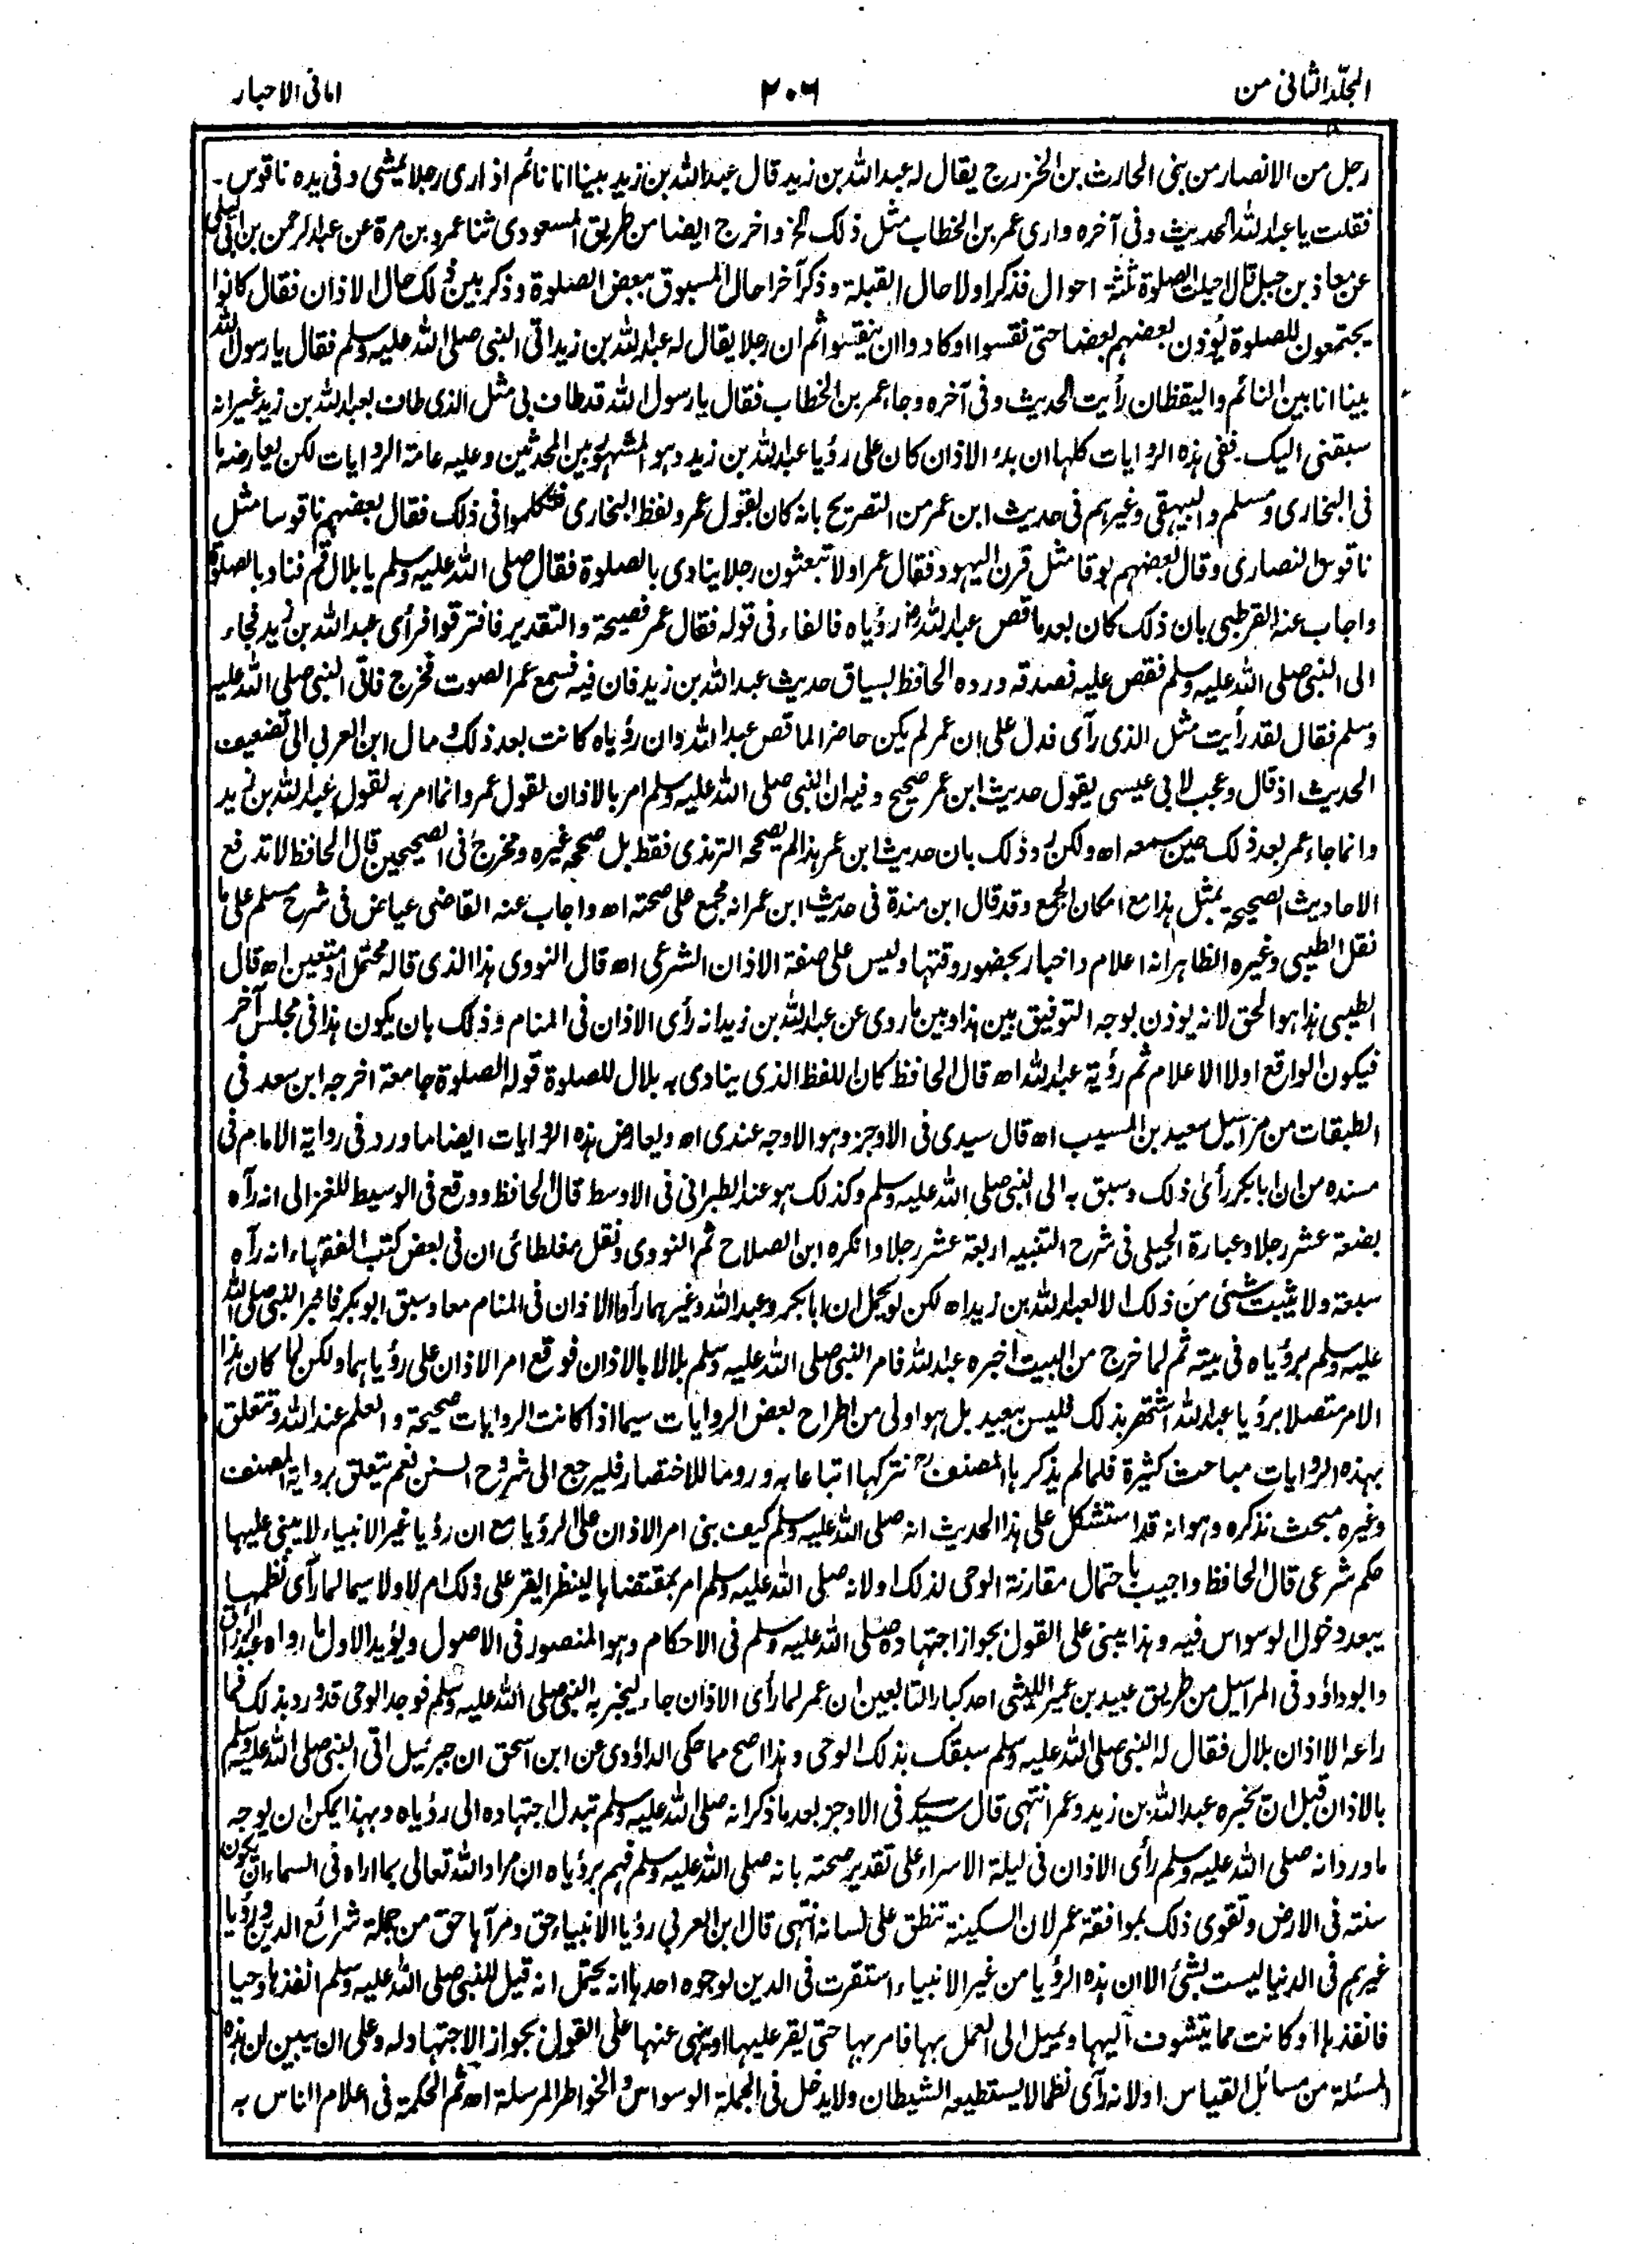 المجلد الثانى من
٢٠٦
امانى الاحبار
رجل من الانصار من بنى الحارث بن الخزرج يقال له عبدالله بن زيد قال عبدالله بن زيد بينا انا نائم اذ ارى رجلا يمشى وفى يده ناقوس۔
فقلت يا عبدالله الحديث وفى آخره وارى عمر بن الخطاب مثل ذلك الخ واخرج ايضا من طريق المسعودى ثنا عمرو بن مرة عن عبدالرحمن بن ابى ليلى
عن معاذ بن جبل قال احيلت الصلوة ثلثة احوال فذكر اولا حال القبلة وذكر آخرا حال المسبوق ببعض الصلوة وذكر بين ذلك حال الاذان فقال كانوا
يجتمعون للصلوة يؤذن بعضهم بعضا حتى نقسوا او كادوا ان ينقسوا ثم ان رجلا يقال له عبدالله بن زيد اتى النبى صلى الله عليه وسلم فقال يا رسول الله
بينا انا بين النائم واليقظان رأيت الحديث وفى آخره وجاء عمر بن الخطاب فقال يا رسول الله قد طاف بى مثل الذى طاف بعبدالله بن زيد غير انه
سبقنى اليك۔ ففى هذه الروايات كلها ان بدء الاذان كان على رؤيا عبدالله بن زيد وهو المشهور بين المحدثين وعليه عامة الروايات لكن يعارضه ما
فى البخارى ومسلم والبيهقى وغيرهم فى حديث ابن عمر من التصريح بانه كان بقول عمر ولفظ البخارى فتكلموا فى ذلك فقال بعضهم ناقوسا مثل
ناقوس النصارى وقال بعضهم بوقا مثل قرن اليهود فقال عمر اولا تبعثون رجلا ينادى بالصلوة فقال صلى الله عليه وسلم يا بلال قم فناد بالصلوة
واجاب عنه القرطبى بان ذلك كان بعد ما قص عبدالله رؤياه فالفاء فى قوله فقال عمر فصيحة والتقدير فافترقوا فرأى عبدالله بن زيد فجاء
الى النبى صلى الله عليه وسلم فقص عليه فصدقه ورده الحافظ بسياق حديث عبدالله بن زيد فان فيه فسمع عمر الصوت فخرج فاتى النبى صلى الله عليه
وسلم فقال لقد رأيت مثل الذى رأى فدل على ان عمر لم يكن حاضرا لما قص عبدالله وان رؤياه كانت بعد ذلك ومال ابن العربى الى تضعيف
الحديث اذ قال وعجب لابى عيسى يقول حديث ابن عمر صحيح وفيه ان النبى صلى الله عليه وسلم امر بالاذان لقول عمر وانما امر به لقول عبدالله بن زيد
وانما جاء عمر بعد ذلك حين سمعه اه ولكن وذلك بان حديث ابن عمر هذا لم يصححه الترمذى فقط بل صححه غيره ومخرج فى الصحيحين قال الحافظ لا تدفع
الاحاديث الصحيحة بمثل هذا مع امكان الجمع وقد قال ابن مندة فى حديث ابن عمر انه مجمع على صحته اه واجاب عنه القاضى عياض فى شرح مسلم على ما
نقل الطيبى وغيره الظاهر انه اعلام واخبار بحضور وقتها وليس على صفة الاذان الشرعى اه قال النووى هذا الذى قاله محتمل او متعين اه قال
الطيبى هذا هو الحق لانه يوذن بوجه التوفيق بين هذا وبين ما روى عن عبدالله بن زيد انه رأى الاذان فى المنام وذلك بان يكون هذا فى مجلس آخر
فيكون الواقع اولا الاعلام ثم رؤية عبدالله اه قال الحافظ كان اللفظ الذى ينادى به بلال للصلوة قوله الصلوة جامعة اخرجه ابن سعد فى
الطبقات من مراسيل سعيد بن المسيب اه قال سيدى فى الاوجز وهو الاوجه عندى اه ويعارض هذه الروايات ايضا ما ورد فى رواية الامام فى
مسنده من ان ابا بكر رأى ذلك وسبق به الى النبى صلى الله عليه وسلم وكذلك هو عند الطبرانى فى الاوسط قال الحافظ ووقع فى الوسيط للغزالى انه رآه
بضعة عشر رجلا وعبارة الجيلى فى شرح التنبيه اربعة عشر رجلا وانكره ابن الصلاح ثم النووى ونقل مغلطائى ان فى بعض كتب الفقهاء انه رآه
سبعة ولا يثبت شئ من ذلك الا لعبدالله بن زيد اه لكن لو يحمل ان ابا بكر وعبدالله وغيرهما رأوا الاذان فى المنام معا وسبق ابو بكر فاخبر النبى صلى الله
عليه وسلم برؤياه فى بيته ثم لما خرج من البيت اخبره عبدالله فامر النبى صلى الله عليه وسلم بلالا بالاذان فوقع امر الاذان على رؤياهما ولكن لما كان هذا
الامر متصلا برؤيا عبدالله اشتهر بذلك فليس ببعيد بل هو اولى من اطراح بعض الروايات سيما اذا كانت الروايات صحيحة والعلم عند الله وتتعلق
بهذه الروايات مباحث كثيرة فلما لم يذكرها المصنف نتركها اتباعا به وروما للاختصار فليرجع الى شروح السنن نعم يتعلق برواية المصنف
وغيره مبحث نذكره وهو انه قد استشكل على هذا الحديث انه صلى الله عليه وسلم كيف بنى امر الاذان على الرؤيا مع ان رؤيا غير الانبياء لا يبنى عليها
حكم شرعى قال الحافظ واجيب باحتمال مقارنة الوحى لذلك او لانه صلى الله عليه وسلم امر بمقتضاها لينظر ايقر على ذلك ام لا ولا سيما لما رآى نظمها
يبعد دخول الوسواس فيه وهذا يبنى على القول بجواز اجتهاده صلى الله عليه وسلم فى الاحكام وهو المنصور فى الاصول ويؤيد الاول ما رواه عبدالرزاق
وابوداؤد فى المراسيل من طريق عبيد بن عمير الليثى احد كبار التابعين ان عمر لما رأى الاذان جاء ليخبر به النبى صلى الله عليه وسلم فوجد الوحى قد ورد بذلك فما
راعه الا اذان بلال فقال له النبى صلى الله عليه وسلم سبقك بذلك الوحى وهذا اصح مما حكى الداؤدى عن ابن اسحق ان جبرئيل اتى النبى صلى الله عليه وسلم
بالاذان قبل ان يخبره عبدالله بن زيد وعمر انتهى قال سيدى فى الاوجز بعد ما ذكر انه صلى الله عليه وسلم تبدل اجتهاده الى رؤياه وبهذا يمكن ان يوجه
ما ورد انه صلى الله عليه وسلم رأى الاذان فى ليلة الاسراء على تقدير صحته بانه صلى الله عليه وسلم فهم برؤياه ان مراد الله تعالى بما اراه فى السماء ان يكون
سنته فى الارض وتقوى ذلك بموافقة عمر لان السكينة تنطق على لسانه انتهى قال ابن العربى رؤيا الانبياء حق ومرآها حق من جملة شرائع الدين ورؤيا
غيرهم فى الدنيا ليست بشئ الا ان هذه الرؤيا من غير الانبياء استقرت فى الدين لوجوه احدها انه يحتمل انه قيل للنبى صلى الله عليه وسلم انفذها وحيا
فانفذها او كانت مما يتشوف اليها ويميل الى العمل بها فامر بها حتى يقر عليها او ينهى عنها على القول بجواز الاجتهاد له وعلى ان يبين لن هذه
المسئلة من مسائل القياس او لانه رآى نظما لا يستطيعه الشيطان ولا يدخل فى الجملة الوسواس والخواطر المرسلة اه ثم الحكمة فى اعلام الناس به